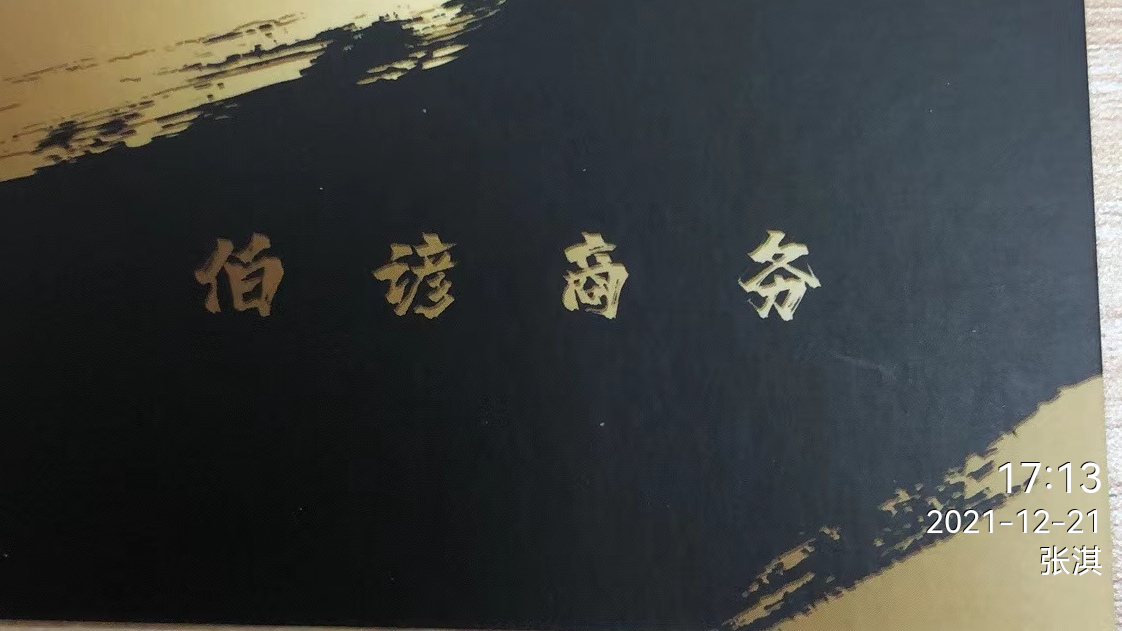 伯谚商务
17:13
2021-12-21
张淇